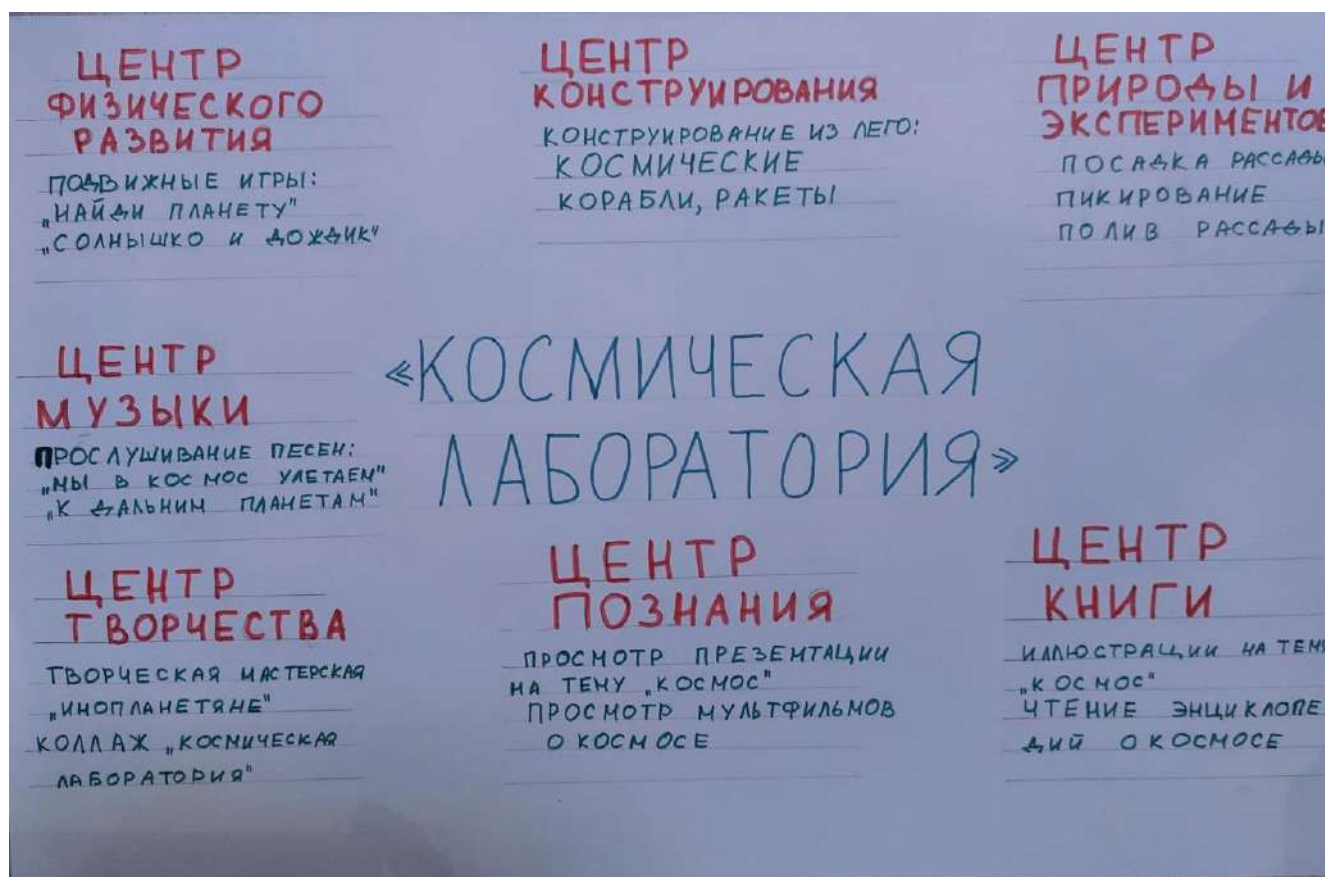 ЦЕНТР
ФИЗИЧЕСКОГО
РАЗВИТИЯ
ПОДВИЖНЫЕ ИГРЫ:
„НАЙДИ ПЛАНЕТУ"
„СОЛНЫШКО И ДОЖДИК"
ЦЕНТР
КОНСТРУИРОВАНИЯ
КОНСТРУИРОВАНИЕ ИЗ ЛЕГО:
КОСМИЧЕСКИЕ
КОРАБЛИ, РАКЕТЫ
ЦЕНТР
ПРИРОДЫ И
ЭКСПЕРИМЕНТОВ
ПОСАДКА РАССАДЫ
ПИКИРОВАНИЕ
ПОЛИВ РАССАДЫ
ЦЕНТР
МУЗЫКИ
ПРОСЛУШИВАНИЕ ПЕСЕН:
„МЫ В КОСМОС УЛЕТАЕМ"
„К ДАЛЬНИМ ПЛАНЕТАМ"
«КОСМИЧЕСКАЯ
ЛАБОРАТОРИЯ»
ЦЕНТР
ТВОРЧЕСТВА
ТВОРЧЕСКАЯ МАСТЕРСКАЯ
„ИНОПЛАНЕТЯНЕ"
КОЛЛАЖ „КОСМИЧЕСКАЯ
ЛАБОРАТОРИЯ"
ЦЕНТР
ПОЗНАНИЯ
ПРОСМОТР ПРЕЗЕНТАЦИИ
НА ТЕМУ „КОСМОС"
ПРОСМОТР МУЛЬТФИЛЬМОВ
О КОСМОСЕ
ЦЕНТР
КНИГИ
ИЛЛЮСТРАЦИИ НА ТЕМУ
„КОСМОС"
ЧТЕНИЕ ЭНЦИКЛОПЕ
ДИЙ О КОСМОСЕ